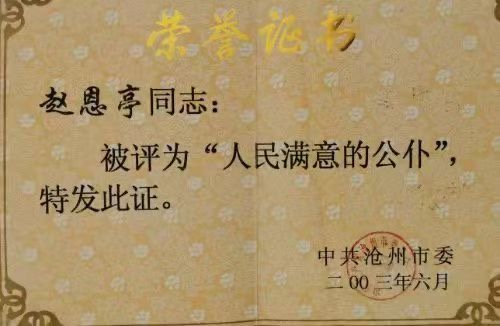 荣誉证书
赵恩亭同志：
被评为“人民满意的公仆”，
特发此证。
中共沧州市委
二00三年六月